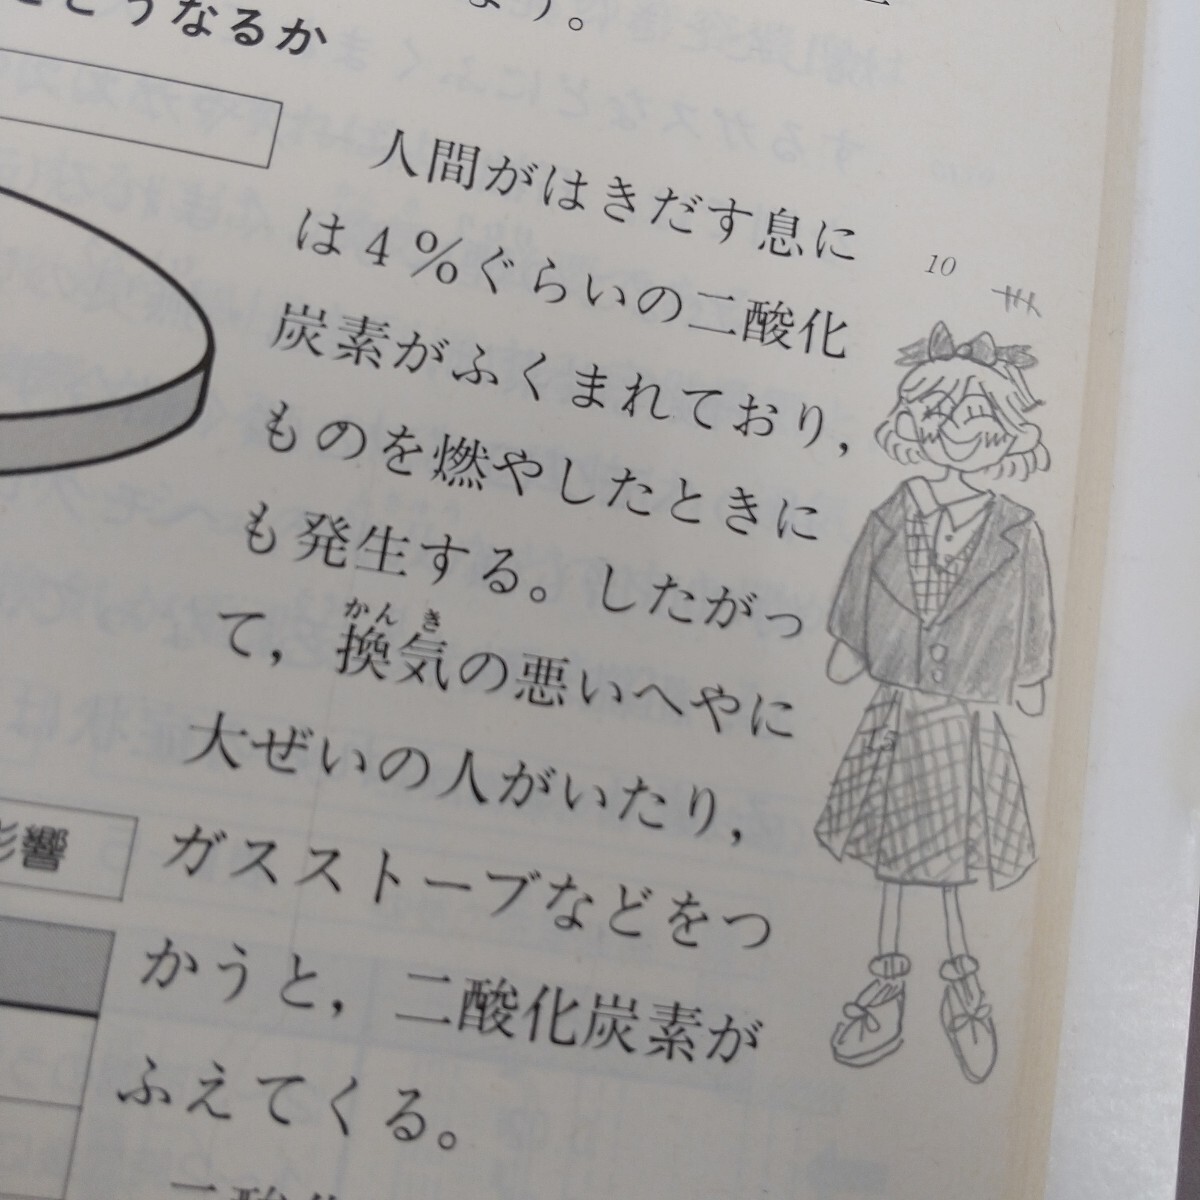 どうなるか
人間がはきだす息に
は4%ぐらいの二酸化
炭素がふくまれており,
ものを燃やしたときに
も発生する。したがっ
て,換気の悪いへやに
かんき
大ぜいの人がいたり,
ガスストーブなどをつ
かうと,二酸化炭素が
ふえてくる。
10
15
影響